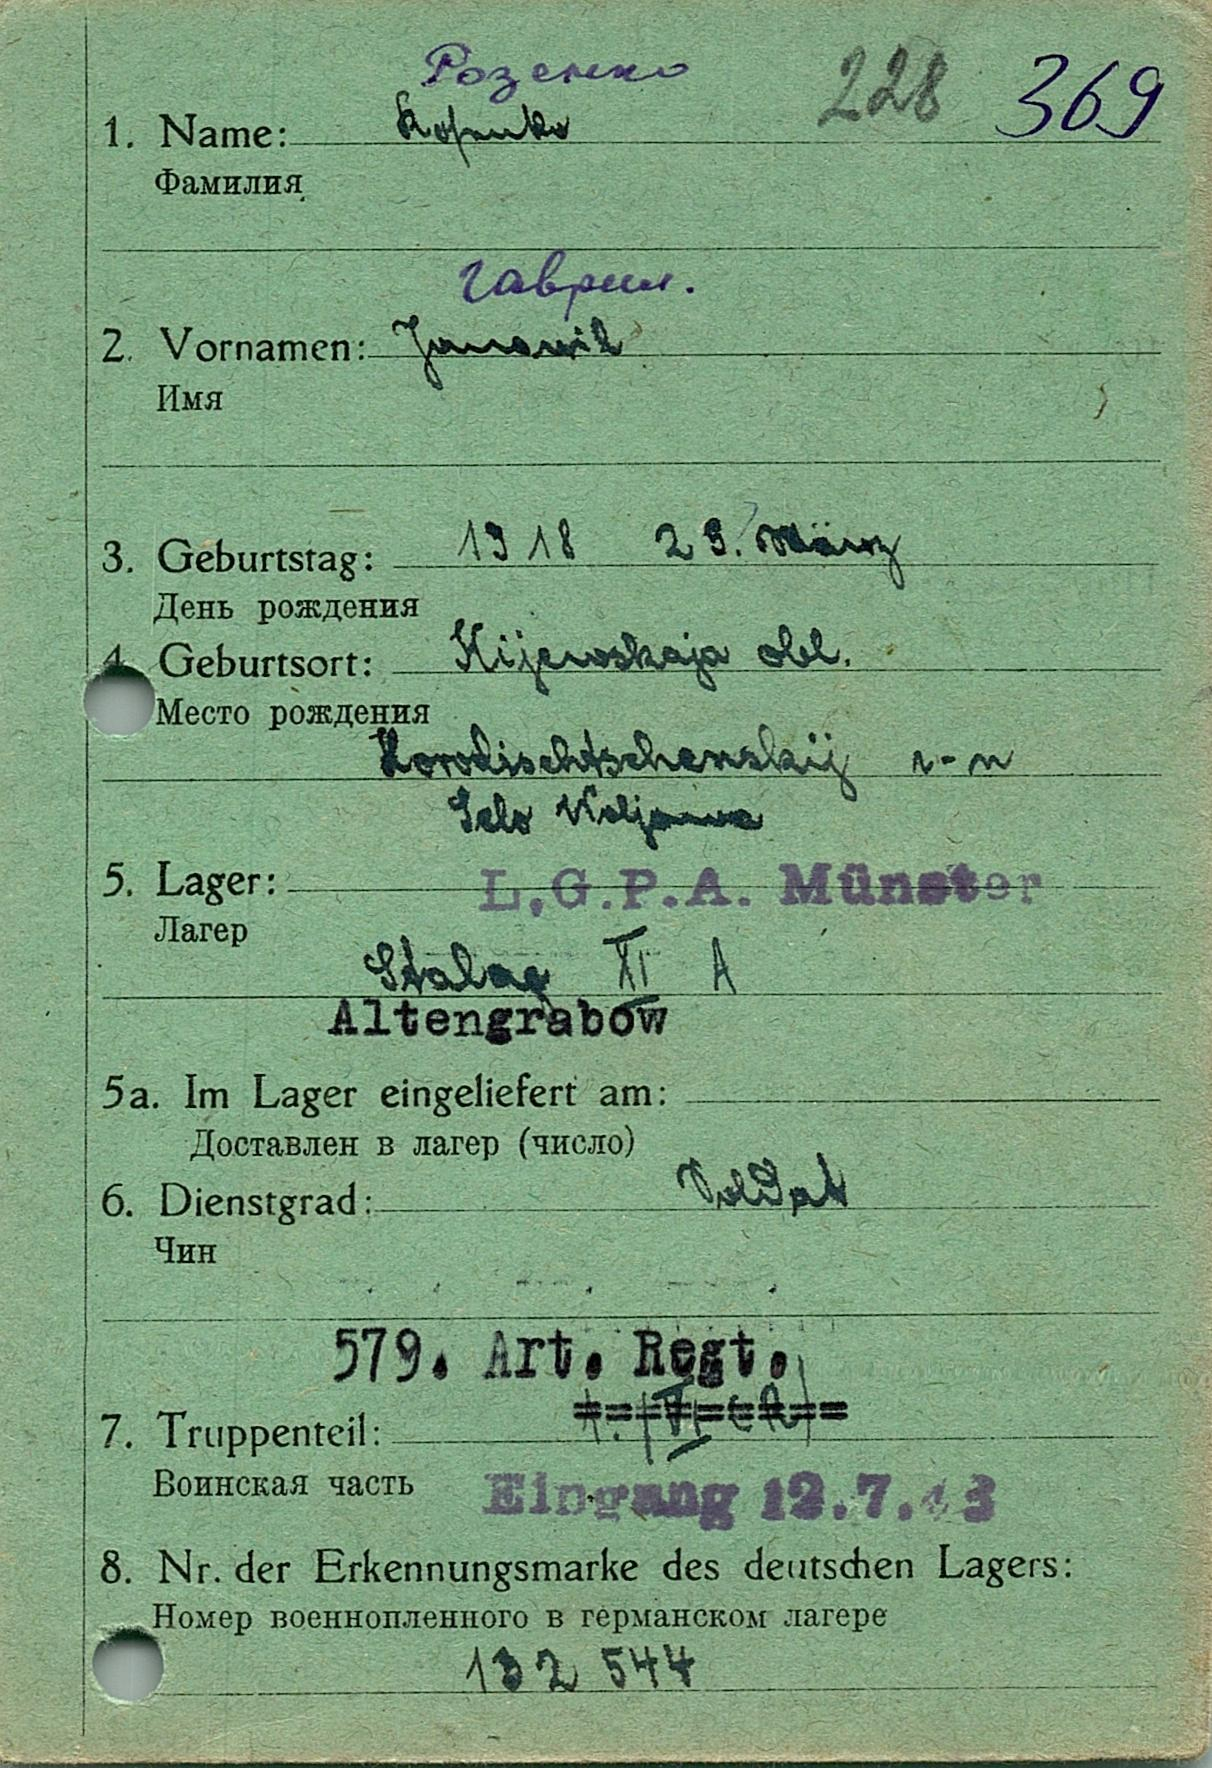 Розенко 228 369
1. Name: Rosenko
Фамилия
Гаврил.
2. Vornamen:
Имя
3. Geburtstag: 1918 29. März
День рождения
4. Geburtsort: Kijewskaja obl.
Место рождения
Horodischtschenskij r-n
Selo
5. Lager: L.G.P.A. Münster
Лагер
Stalag XI A
Altengrabow
5a. Im Lager eingeliefert am:
Доставлен в лагер (число)
6. Dienstgrad: Soldat
Чин
579. Art. Regt.
7. Truppenteil:
Воинская часть Eingang 12.7.43
8. Nr. der Erkennungsmarke des deutschen Lagers:
Номер военнопленного в германском лагере
132 544